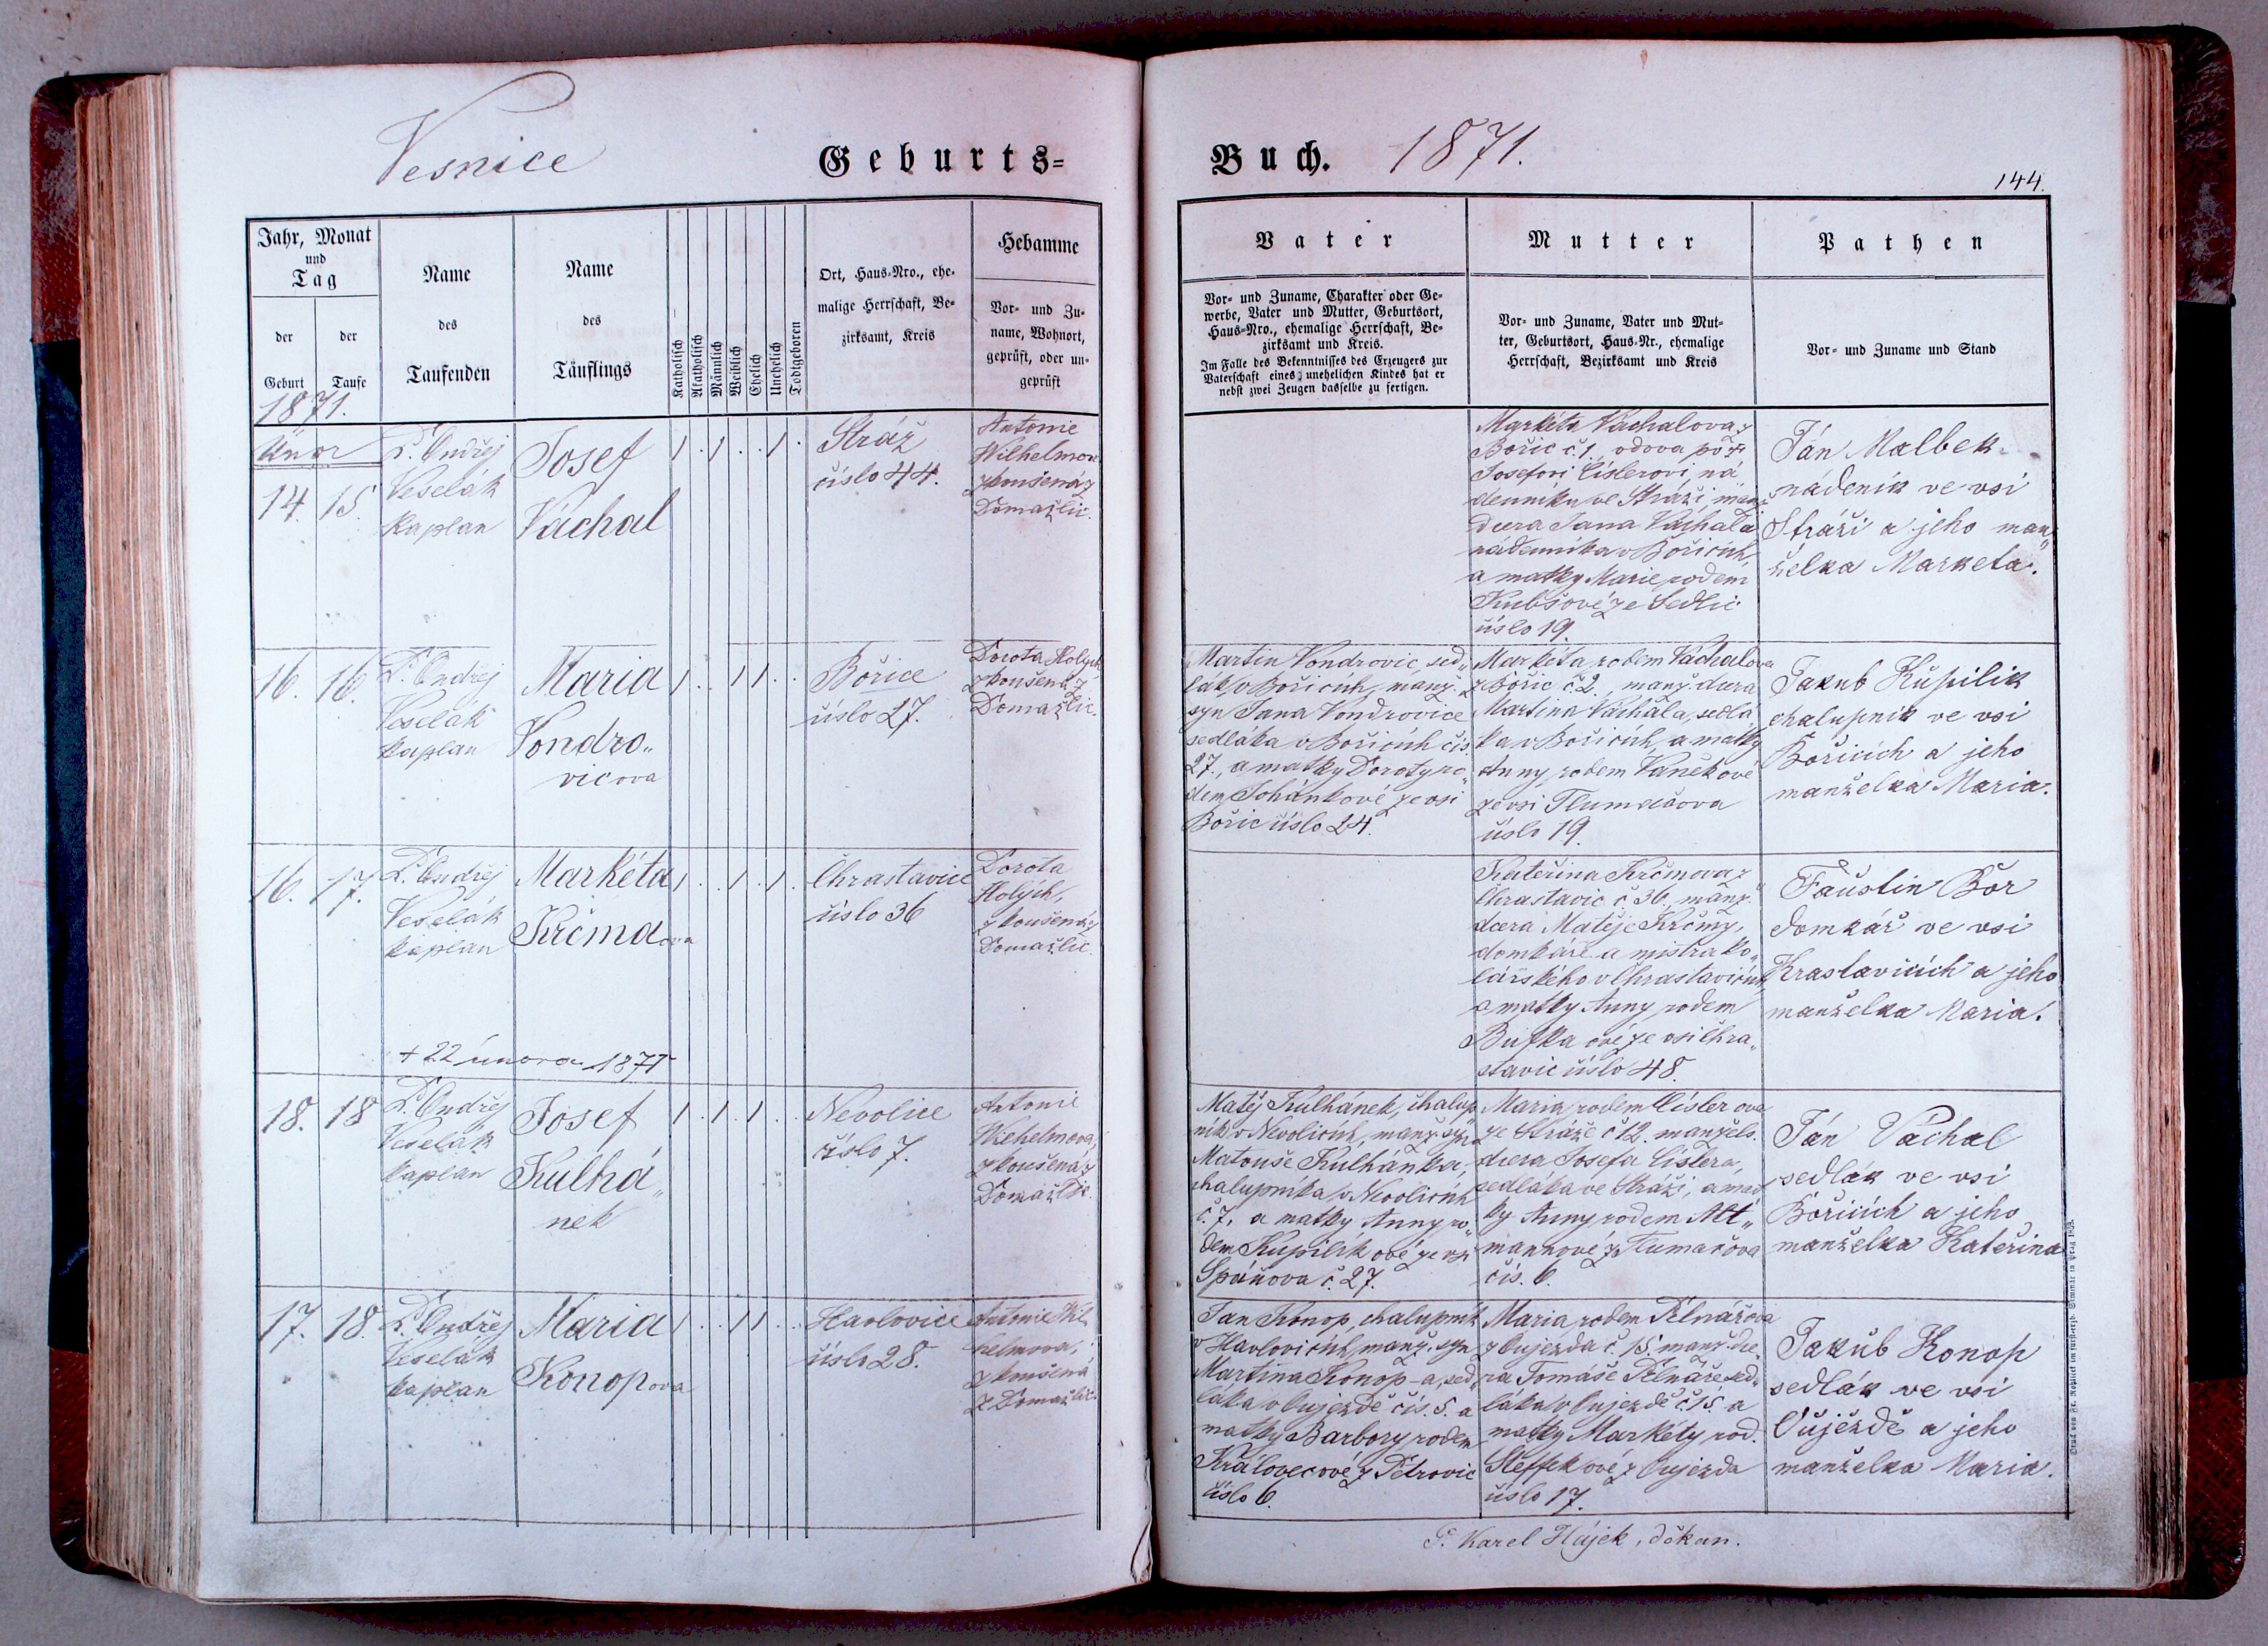 Vesnice
Geburts=
Buch. 1871.
144.
Jahr, Monat
und
Tag
der
Geburt
der
Taufe
Name
des
Taufenden
Name
des
Täuflings
Katholisch
Akatholisch
Männlich
Weiblich
Ehelich
Unehelich
Todtgeboren
Ort, Haus-Nro., ehe-
malige Herrschaft, Be-
zirksamt, Kreis
Hebamme
Vor- und Zu-
name, Wohnort,
geprüft, oder un-
geprüft
Vater
Vor- und Zuname, Charakter oder Ge-
werbe, Vater und Mutter, Geburtsort,
Haus-Nro., ehemalige Herrschaft, Be-
zirksamt und Kreis.
Im Falle des Bekenntnisses des Erzeugers zur
Vaterschaft eines unehelichen Kindes hat er
nebst zwei Zeugen dasselbe zu fertigen.
Mutter
Vor- und Zuname, Vater und Mut-
ter, Geburtsort, Haus-Nr., ehemalige
Herrschaft, Bezirksamt und Kreis
Pathen
Vor- und Zuname und Stand
1871.
Únor
14. 15
P. Ondřej
Veselák
kaplan
Josef
Váchal
1 . 1 . . 1 .
Stráž
číslo 44.
Antonie
Wilhelmov
zkoušená z
Domažlic.
Markéta Váchalova z
Bořic č. 1., vdova po
Josefovi Cislerovi, ná
denníku ve Stráži, manž
dcera Jana Váchala
nádenníka v Bořicích,
a matky Marie rodem
Kubšové ze Sedlic
číslo 19.
Ján Malbek
nádeník ve vsi
Stráži a jeho man„
želka Marketa.
16. 16.
P. Ondřej
Veselák
kaplan
Maria
Vondro„
vicova
1 . . 1 1 . .
Bořice
číslo 27.
Dorota Holých
zkoušená z
Domažlic.
Martin Vondrovic, sed„
lák v Bořicích, manž.
syn Jana Vondrovice
sedláka v Bořicích čís
27., a matky Doroty ro„
dem Johánkové ze vsi
Bořic číslo 24.
Markéta rodem Váchalova
z Bořic č. 2., manž. dcera
Martina Váchala, sedlá
ka v Bořicích, a matky
Anny, rodem Vaněkové
ze vsi Tlumačova
číslo 19.
Jakub Kupilik
chalupník ve vsi
Bořicích a jeho
manželka Maria.
16. 17.
P. Ondřej
Veselák
kaplan
Markéta
Krčmaova
1 . . 1 . 1 .
Chrastavice
číslo 36
Dorota
Holých,
zkoušená z
Domažlic.
+ 22 února 1871
Kateřina Krčmova z
Chrastavic č 36., manž.
dcera Matěje Krčmy,
domkáře a mistra ko„
lářského v Chrastavicích,
a matky Anny, rodem
Bufka ové ze vsi Chra„
stavic číslo 48.
Faustin Bor
domkář ve vsi
Krastavicích a jeho
manželka Maria.
18. 18
P. Ondřej
Veselák
kaplan
Josef
Kulhá„
nek
1 . 1 . 1 . .
Nevolice
číslo 7.
Antonie
Wilhelmova,
zkoušená z
Domažlic.
Matěj Kulhánek, chalup„
ník v Nevolicích, manž. syn
Matouše Kulhánka,
chalupníka v Nevolicích
č. 7, a matky Anny ro„
dem Kupilík ové ze vsi
Spáňova č. 27.
Maria rodem Cisler ova
ze Stráže č 12. manžels.
dcera Josefa Cislera,
sedláka ve Stráži, a mat
ky Anny rodem Alt„
mannové z Tlumačova
čís. 6.
Ján Váchal
sedlák ve vsi
Bořicích a jeho
manželka Kateřina
17. 18.
P. Ondřej
Veselák
kaplan
Maria
Konopova
1 . . 1 1 . .
Havlovice
číslo 28.
Antonie Wil
helmova,
zkoušená
z Domažlic.
Jan Konop, chalupník
v Havlovicích, manž. syn
Martina Konop-a, sed„
láka v Oujezdě čís. 5. a
matky Barbory rodem
Královcové z Petrovic
číslo 6.
Maria rodem Pelnářova
z Oujezda č. 15. manž. dce
ra Tomáše Pelnáře sed„
láka v Oujezdě č. 15. a
matky Markéty rod.
Steffek ové z Oujezda
číslo 17.
Jakub Konop
sedlák ve vsi
Oujezdě a jeho
manželka Maria.
P. Karel Hájek, děkan.